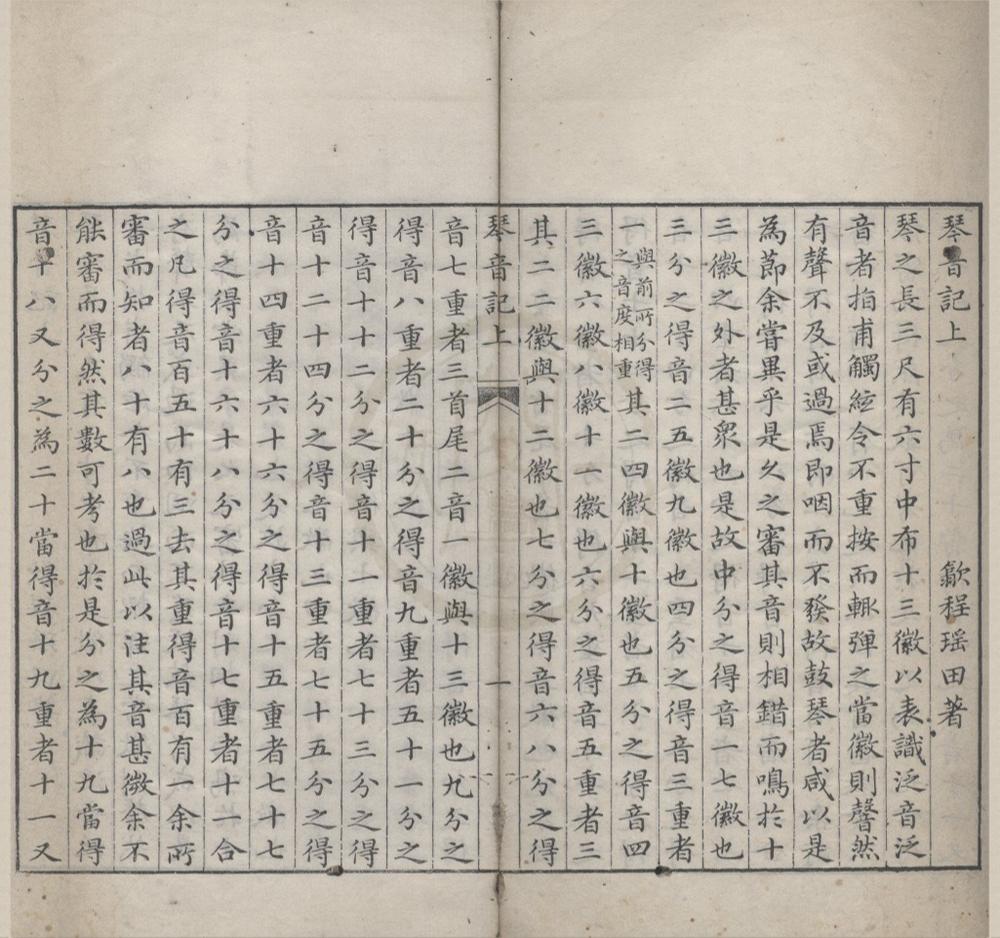 琴音記上
歙程瑶田著
琴之長三尺有六寸中布十三徽以表識泛音泛
音者指甫觸絃令不重按而輒彈之當徽則馨然
有聲不及或過焉即咽而不發故鼓琴者咸以是
為節余嘗異乎是久之審其音則相錯而鳴於十
三徽之外者甚衆也是故中分之得音一七徽也
三分之得音二五徽九徽也四分之得音三重者
一與前所分得之音度相重其二四徽與十徽也五分之得音四
三徽六徽八徽十一徽也六分之得音五重者三
其二二徽與十二徽也七分之得音六八分之得
琴音記上 一
音七重者三首尾二音一徽與十三徽也九分之
得音八重者二十分之得音九重者五十一分之
得音十十二分之得音十一重者七十三分之得
音十二十四分之得音十三重者七十五分之得
音十四重者六十六分之得音十五重者七十七
分之得音十六十八分之得音十七重者十一合
之凡得音百五十有三去其重得音百有一余所
審而知者八十有八也過此以注其音甚微余不
能審而得然其數可考也於是分之為十九當得
音十八又分之為二十當得音十九重者十一又